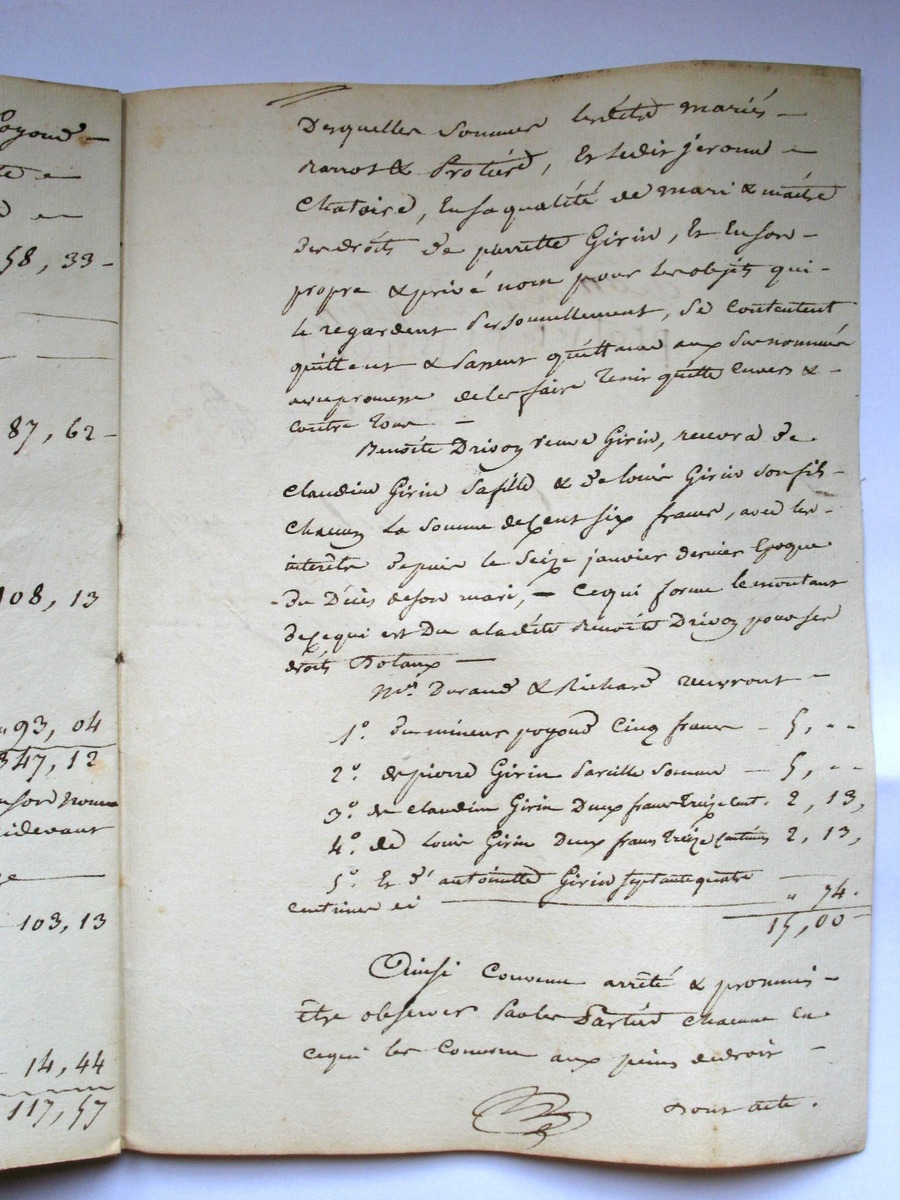 58, 33 -
87, 62 -
108, 13
" 93, 04
347, 12
en son nom
cidevant
103, 13
14, 44
117, 57
Desquelles sommes lesdits mariés -
& Protière, et ledit jerome -
Chatoire, en sa qualité de mari & maitre
des droits de pierrette Girin, et en son -
propre & privé nom pour les objets qui -
le regardent personnellement, se contentent
quittent & passent quittance aux surnommés
avec promesse de les faire tenir quitte envers &
contre tous -
Benoite Drivon veuve Girin, recevra de
Claudine Girin sa fille & de louis Girin son fils -
Chacun la somme de Cent six francs, avec les -
intérêts depuis le seize janvier dernier époque
du Décès de son mari, - Ce qui forme le montant
de Ce qui est Du a ladite Benoite Drivon pour ses
droits Dotaux -
Mrs Durand & Richard recevront -
1º. du mineur poyoud Cinq francs - 5, " "
2º. de pierre Girin pareille somme - 5, " "
3º. de Claudine Girin Deux francs treize Cent. 2, 13,
4º. de Louis Girin Deux francs treize Centimes 2, 13,
5º. Et d'antoinette Girin septante quatre
centimes ci " 74.
15,00
Ainsi Convenu arrêté & promis -
être observer par les Parties chacune en
ce qui les Concerne aux peines de droit -
Dont acte.